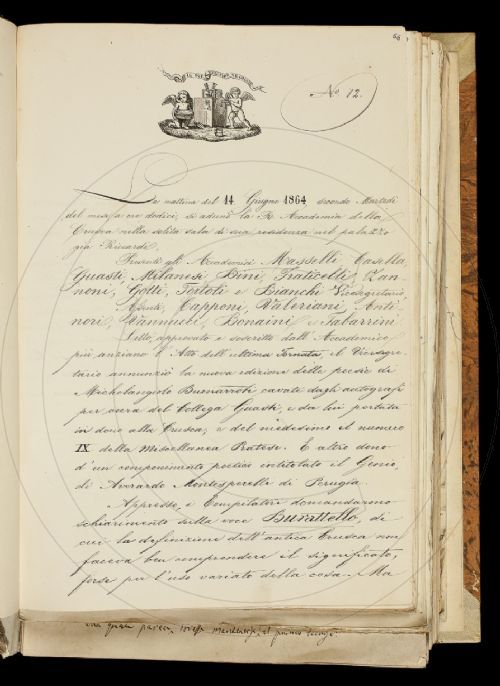 66
N.º 12.
La mattina del 14 Giugno 1864 secondo Martedì
del mese a ore dodici, si adunò la R. Accademia della
Crusca nella solita sala di sua residenza nel palazzo
già Riccardi.
Presenti gli Accademici Masselli, Casella,
Guasti, Milanesi, Bini, Fraticelli, Zan-
noni, Gotti, Tortoli e Bianchi Vicesegretario
Assenti, Capponi, Valeriani, Anti-
nori, Vannucci, Bonaini e Tabarrini
Letto, approvato e soscritto dall'Accademico
più anziano l'Atto dell'ultima Tornata, il Vicesegre-
tario annunziò la nuova edizione delle poesie di
Michelangiolo Buonarroti cavate dagli autografi
per cura del Collega Guasti, e da lui portata
in dono alla Crusca; e del medesimo il numero
IX della Miscellanea Pratese. E altro dono
d'un componimento poetico intitolato il Genio,
di Averardo Montesperelli di Perugia.
Appresso, i Compilatori domandarono
schiarimento sulla voce Burattello, di
cui la definizione dell'antica Crusca non
faceva ben comprendere il significato,
forse per l'uso variato della cosa. Ma